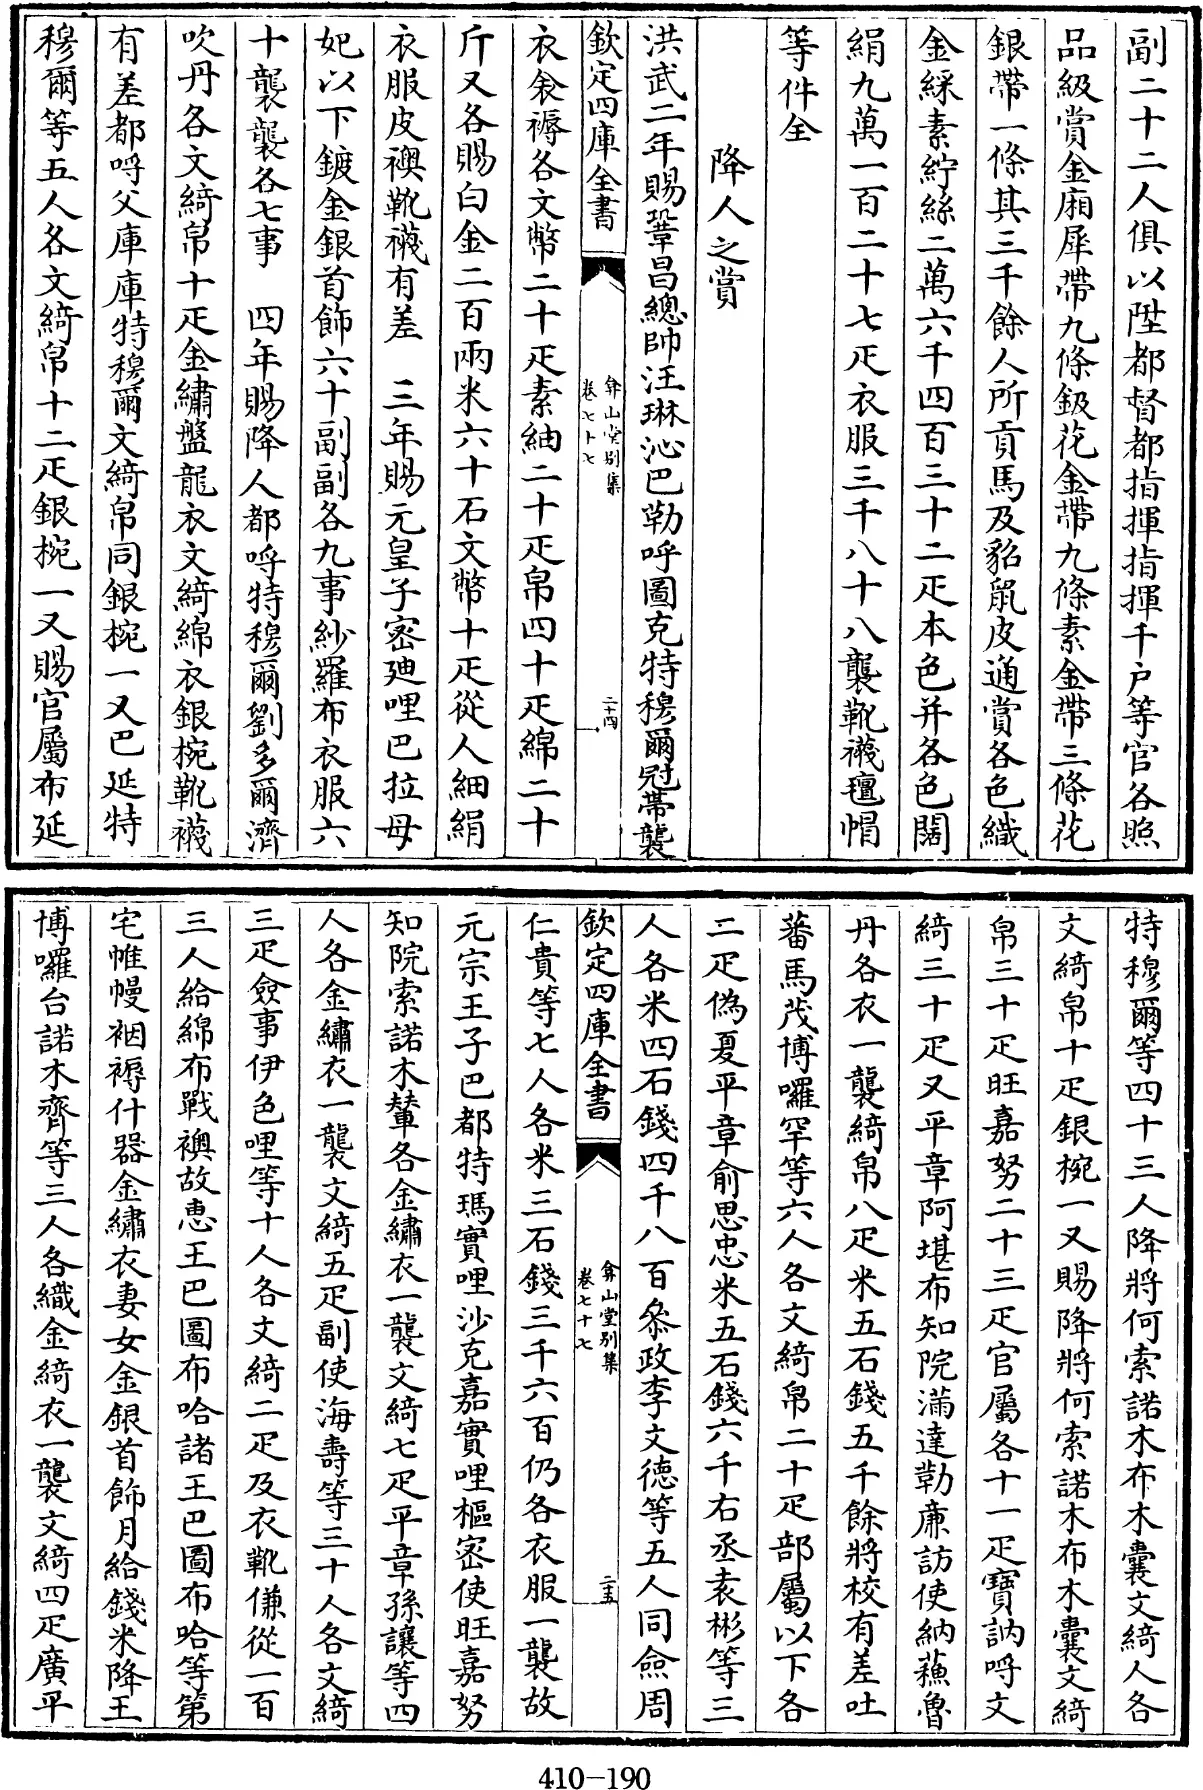 副二十二人俱以陞都督都指揮指揮千户等官各照
品級賞金廂犀帶九條鈒花金帶九條素金帶三條花
銀帶一條其三千餘人所貢馬及貂鼠皮通賞各色織
金綵素紵絲二萬六千四百三十二疋本色并各色闊
絹九萬一百二十七疋衣服三千八十八襲靴襪氊帽
等件全
降人之賞
洪武二年賜鞏昌總帥汪琳沁巴勒呼圖克特穆爾冠帶襲
欽定四庫全書
弇山堂别集
卷七十七
二十四
衣衾褥各文幣二十疋素紬二十疋帛四十疋綿二十
斤又各賜白金二百兩米六十石文幣十疋從人細絹
衣服皮襖靴襪有差　三年賜元皇子密廸哩巴拉母
妃以下鍍金銀首飾六十副副各九事紗羅布衣服六
十襲襲各七事　四年賜降人都哷特穆爾劉多爾濟
吹丹各文綺帛十疋金繡盤龍衣文綺綿衣銀椀靴襪
有差都哷父庫庫特穆爾文綺帛同銀椀一又巴延特
穆爾等五人各文綺帛十二疋銀椀一又賜官屬布延
特穆爾等四十三人降將何索諾木布木囊文綺人各
文綺帛十疋銀椀一又賜降將何索諾木布木囊文綺
帛三十疋旺嘉努二十三疋官屬各十一疋寶訥哷文
綺三十疋又平章阿堪布知院滿達勒廉訪使納蘓魯
丹各衣一襲綺帛八疋米五石錢五千餘將校有差吐
蕃馬茂博囉罕等六人各文綺帛二十疋部屬以下各
二疋偽夏平章俞思忠米五石錢六千右丞袁彬等三
人各米四石錢四千八百叅政李文德等五人同僉周
欽定四庫全書
弇山堂别集
卷七十七
二十五
仁貴等七人各米三石錢三千六百仍各衣服一襲故
元宗王子巴都特瑪實哩沙克嘉實哩樞密使旺嘉努
知院索諾木輦各金繡衣一襲文綺七疋平章孫讓等四
人各金繡衣一襲文綺五疋副使海壽等三十人各文綺
三疋僉事伊色哩等十人各文綺二疋及衣靴傔從一百
三人給綿布戰襖故惠王巴圖布哈諸王巴圖布哈等第
宅帷幔裀褥什器金繡衣妻女金銀首飾月給錢米降王
博囉台諾木齊等三人各織金綺衣一襲文綺四疋廣平
410-190